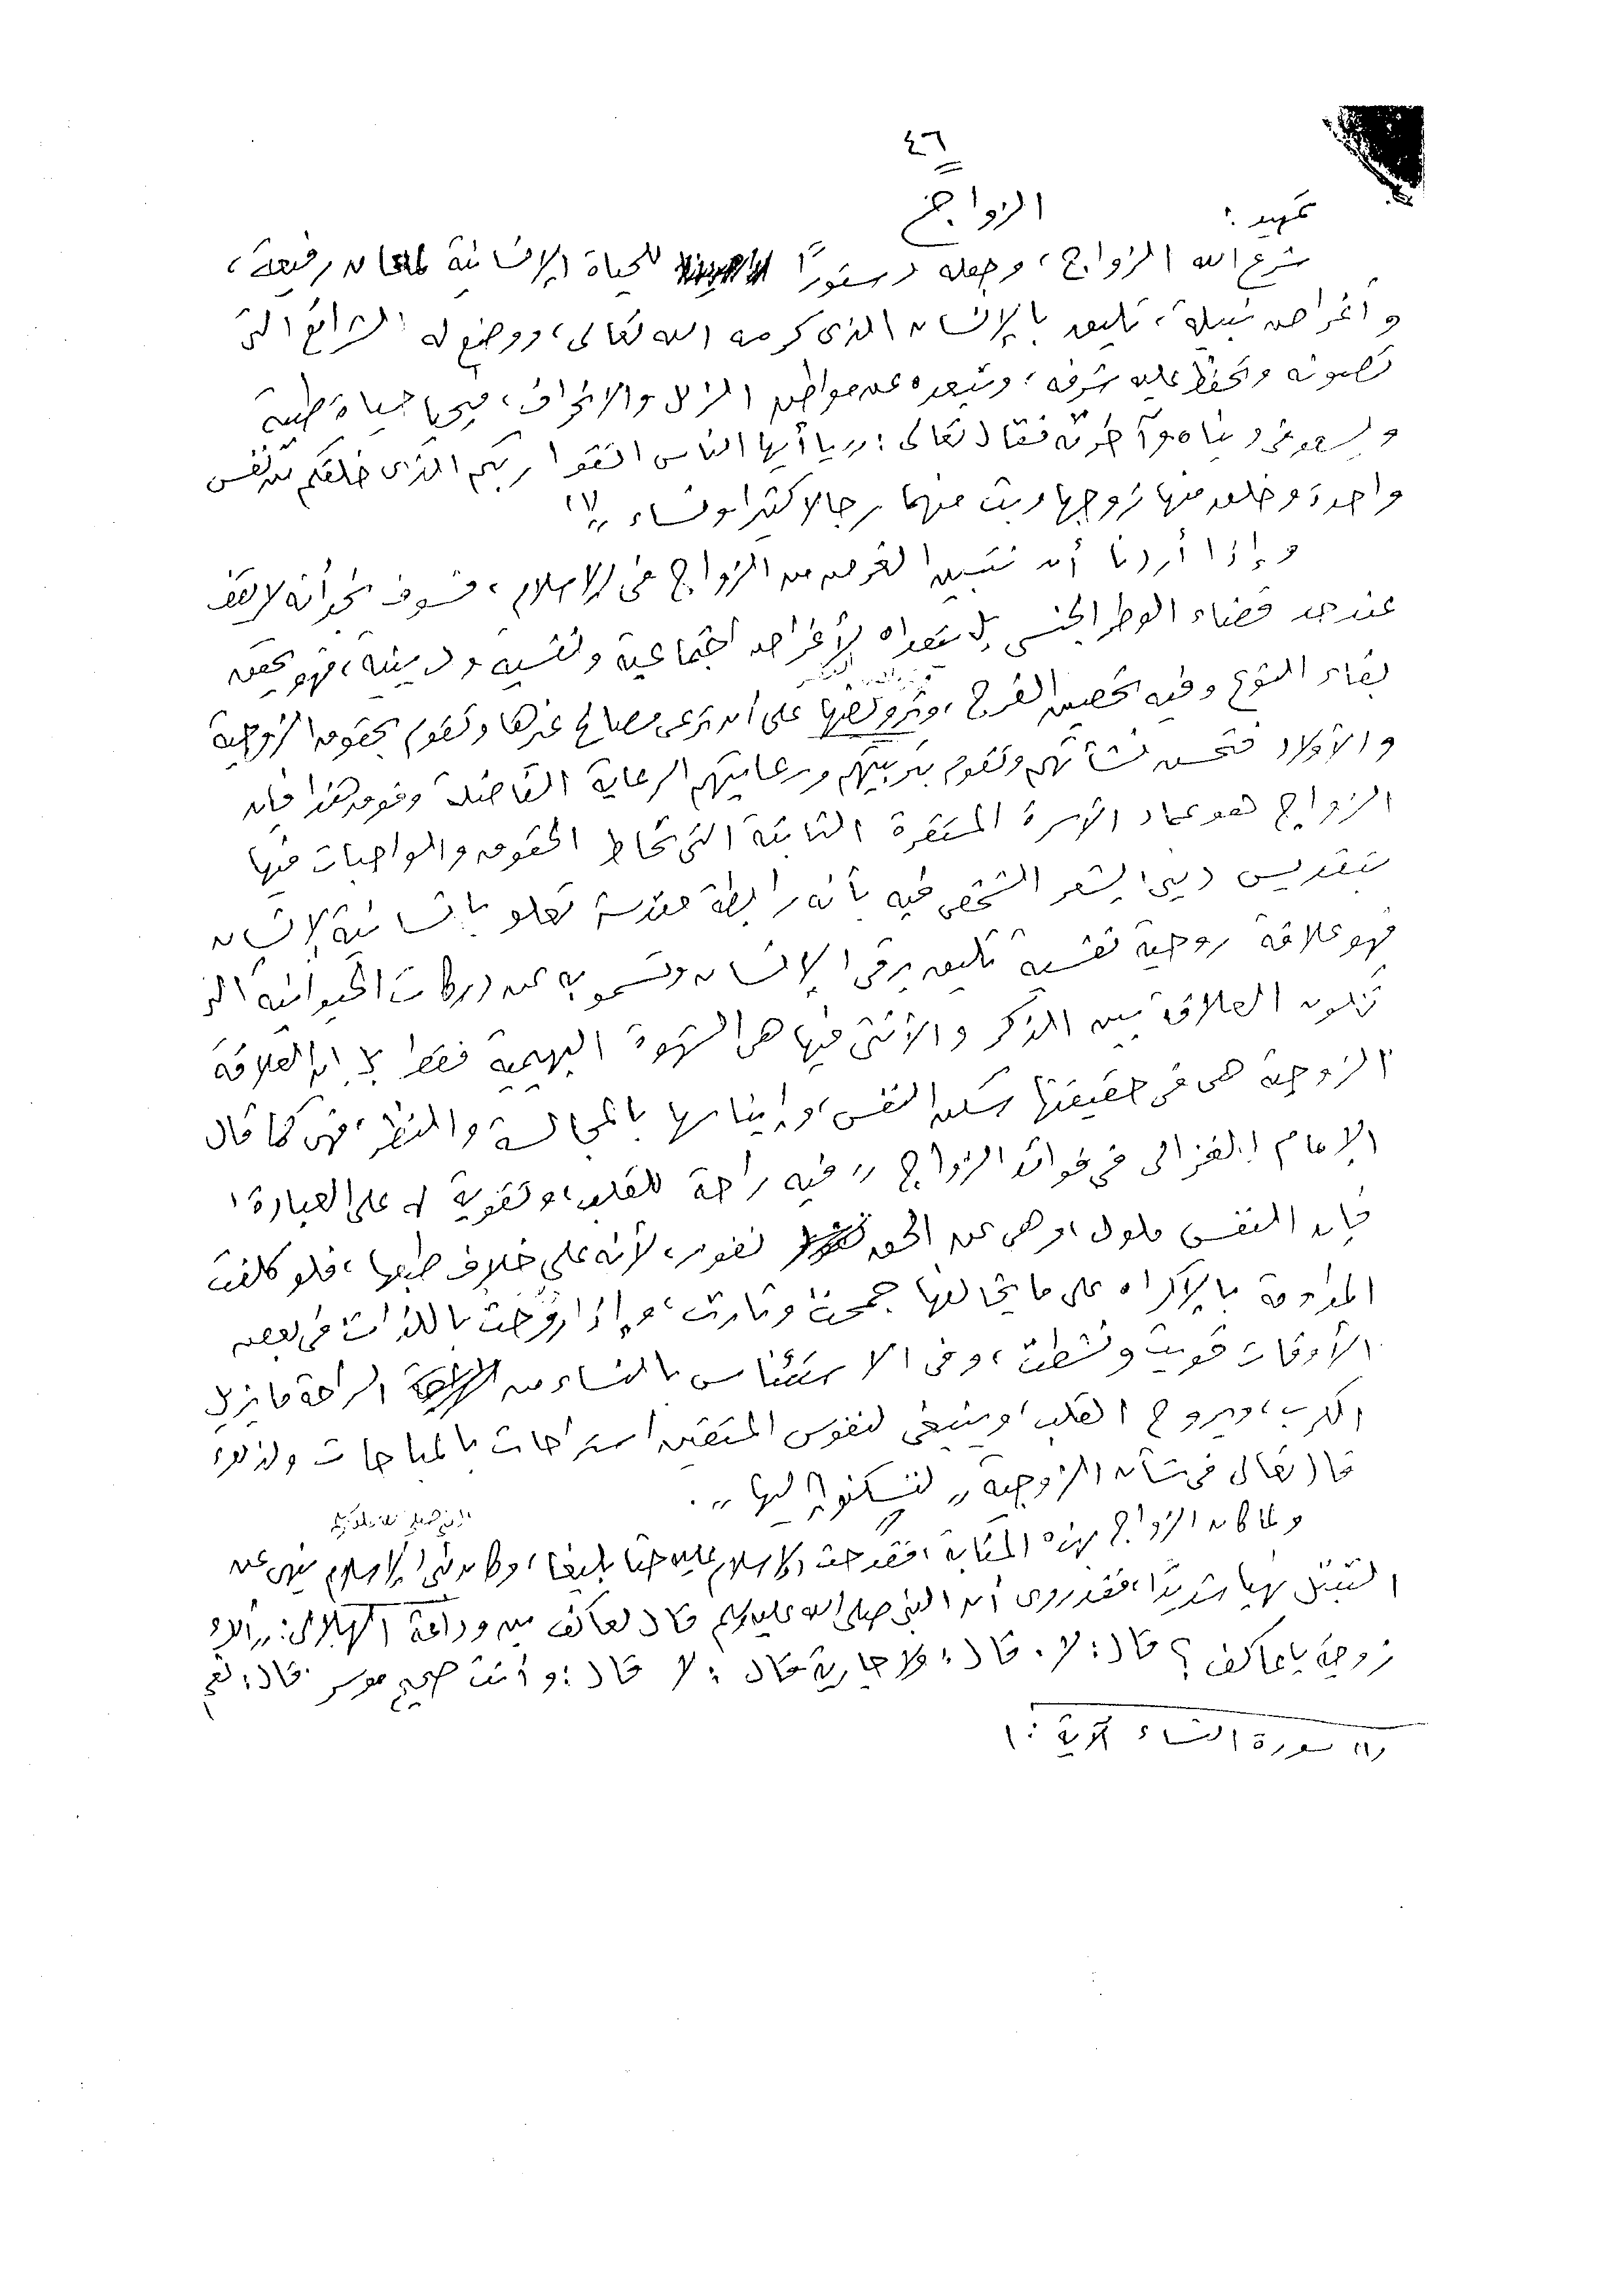 ٤٦
الزواج
تمهيد :
شرع الله الزواج، وجعله دستورًا للحياة الإنسانية لمعان رفيعة،
وأغراض نبيلة، تليق بالإنسان الذى كرمه الله تعالى، ووضع له الشرائع التى
تصونه وتحفظ عليه شرفه، وتبعده عن مواطن الزلل والانحراف، فيحيا حياة طيبة
ويسعد فى دنياه وآخرته فقال تعالى : "يا أيها الناس اتقوا ربكم الذى خلقكم من نفس
واحدة وخلق منها زوجها وبث منهما رجالا كثيرا ونساء" (١)
وإذا أردنا أن نتبين الغرض من الزواج فى الإسلام، فسوف نجد أنه لا يقف
عند حد قضاء الوطر الجنسى بل يتعداه لأغراض اجتماعية ونفسية ودينية، فهو يحقق
بقاء النوع وفيه تحصين الفرج، وترويضها على أن ترعى مصالح غيرها وتقوم بحقوق الزوجية
والأولاد فتحسن نشأتهم وتقوم بتربيتهم ورعايتهم الرعاية الفاضلة وفوق هذا فإن
الزواج هو عماد الأسرة المستقرة الثابتة التى تحاط الحقوق والواجبات فيها
بتقديس دينى يشعر الشخص فيه بأنه رابطة مقدسة تعلو بإنسانية الإنسان
فهو علاقة روحية نفسية تليق برقى الإنسان وتسمو به عن دركات الحيوانية التى
تكون العلاقة بين الذكر والأنثى فيها هى الشهوة البهيمية فقط بل إن العلاقة
الزوجية هى فى حقيقتها سكن النفس، وإيناسها بالمجالسة والنظر، فهى كما قال
الإمام الغزالى فى فوائد الزواج "فيه راحة للقلب، وتقوية له على العبادة،
فإن النفس ملول، وهى عن الحق نفور، لأنه على خلاف طبعها، فلو كلفت
المداومة بالإكراه على ما يخالفها جمحت وثارت، وإذا روحت باللذات فى بعض
الأوقات قويت ونشطت، وفى الاستئناس بالنساء من الراحة ما يزيل
الكرب، ويروح القلب، وينبغى لنفوس المتقين استراحات بالمباحات ولذلك
قال تعالى فى شأن الزوجية "لتسكنوا إليها" .
ولما كان الزواج بهذه المثابة، فقد حث الإسلام عليه حثا بليغا، وكان نبى الإسلام ينهى عن
التبتل نهيا شديدًا، فقد روى أن النبى صلى الله عليه وسلم قال لعاكف بن وداعة الهلالى : "ألك
زوجة يا عاكف ؟ قال : لا . قال : ولا جارية قال : لا قال : وأنت صحيح موسر . قال : نعم
(١) سورة النساء آية : ١